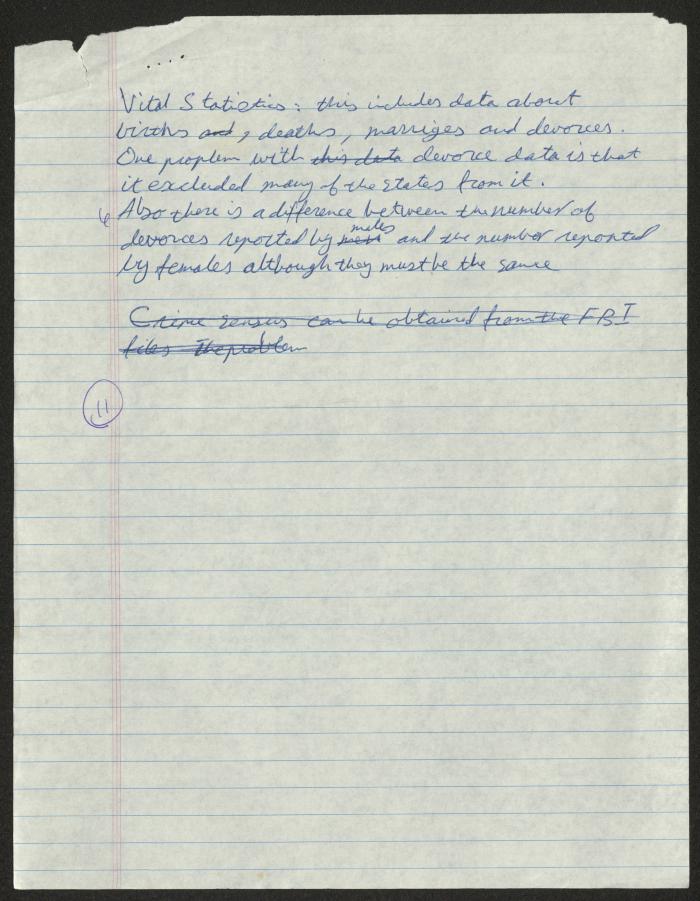 Vital Statistics : this includes data about
births and , deaths, marriges and devorces.
One proplem with this data devorce data is that
it excluded many of the states from it.
Also there is a difference between the number of
males
devorces reported by and the number reported
by females although they must be the same
Crime sensus can be obtained from the FBI
files The problem
11